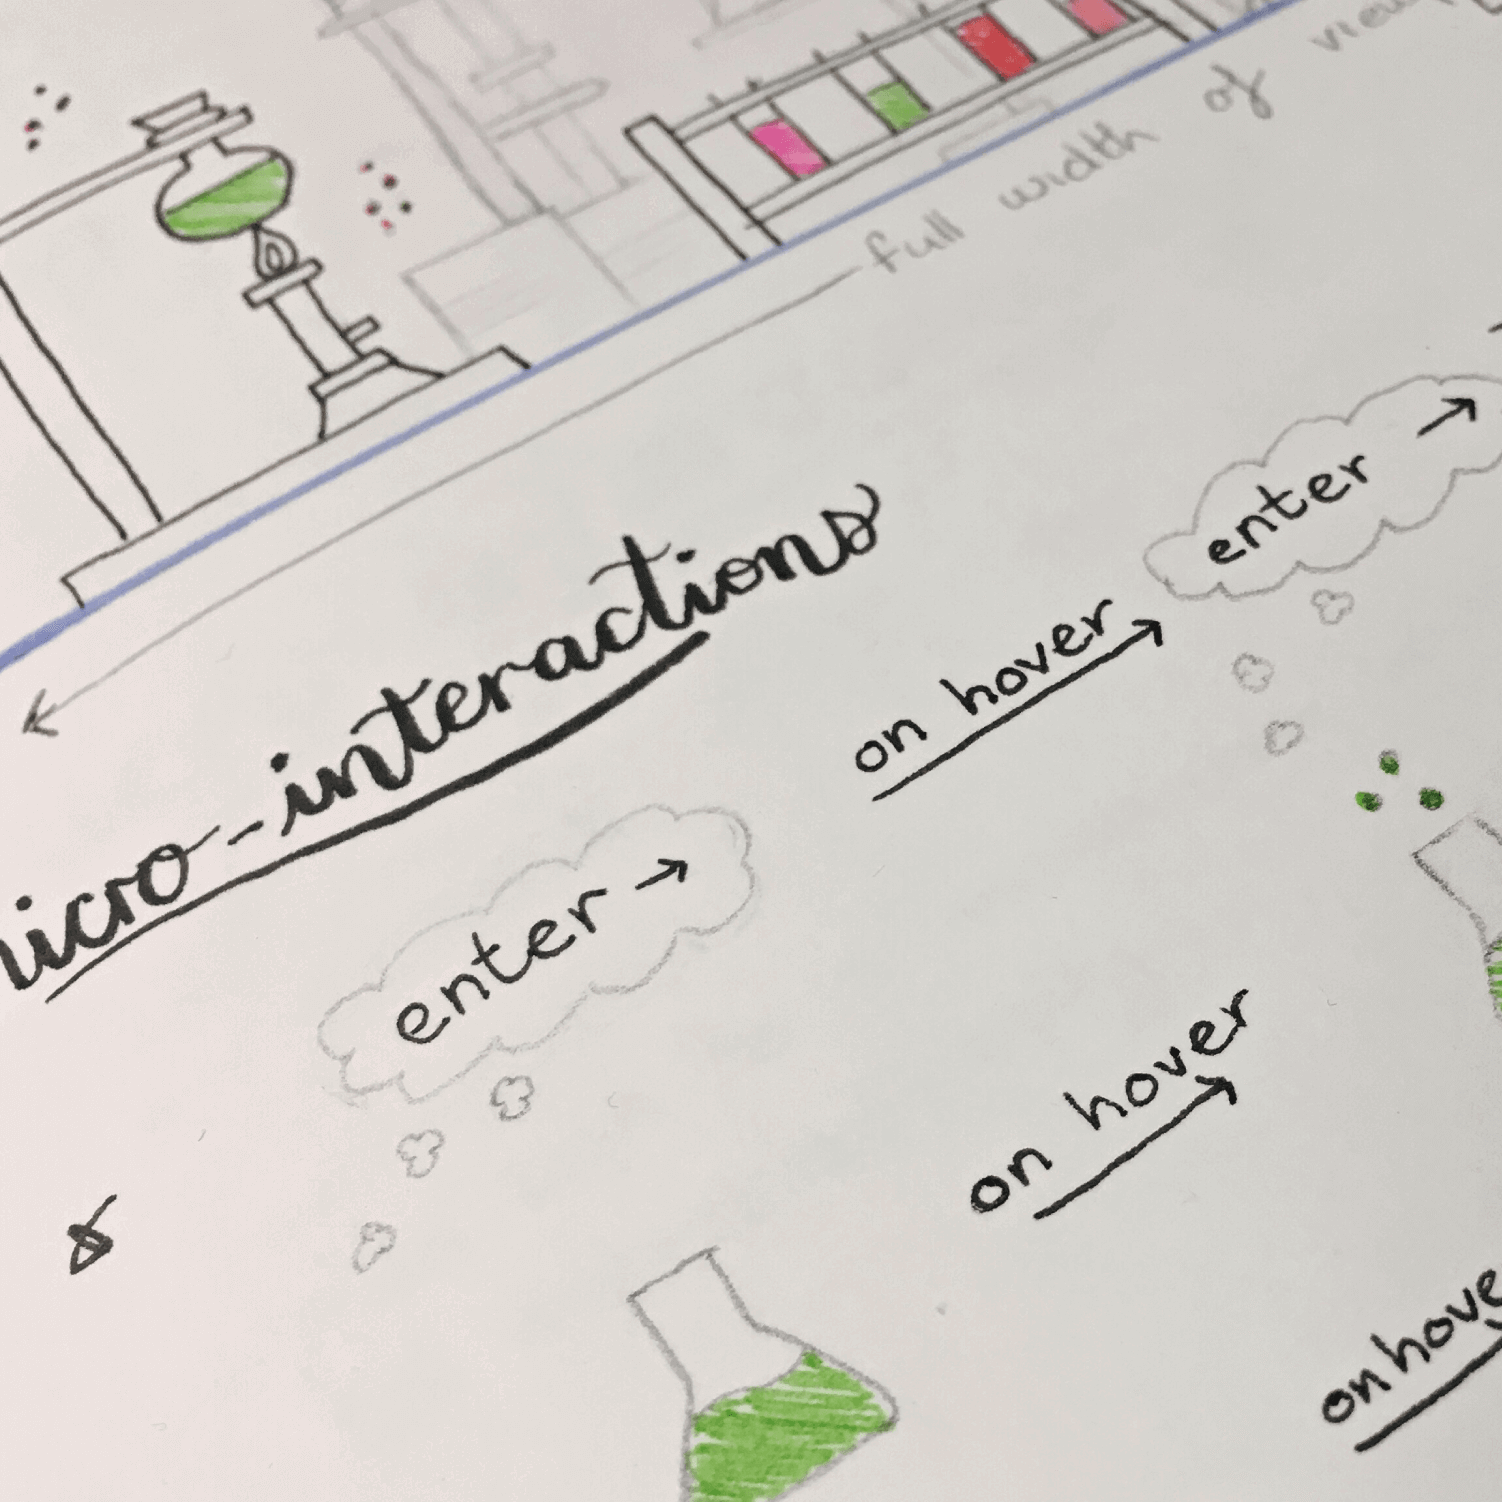 full width of
micro-interactions
enter →
on hover
enter →
on hover
on hove